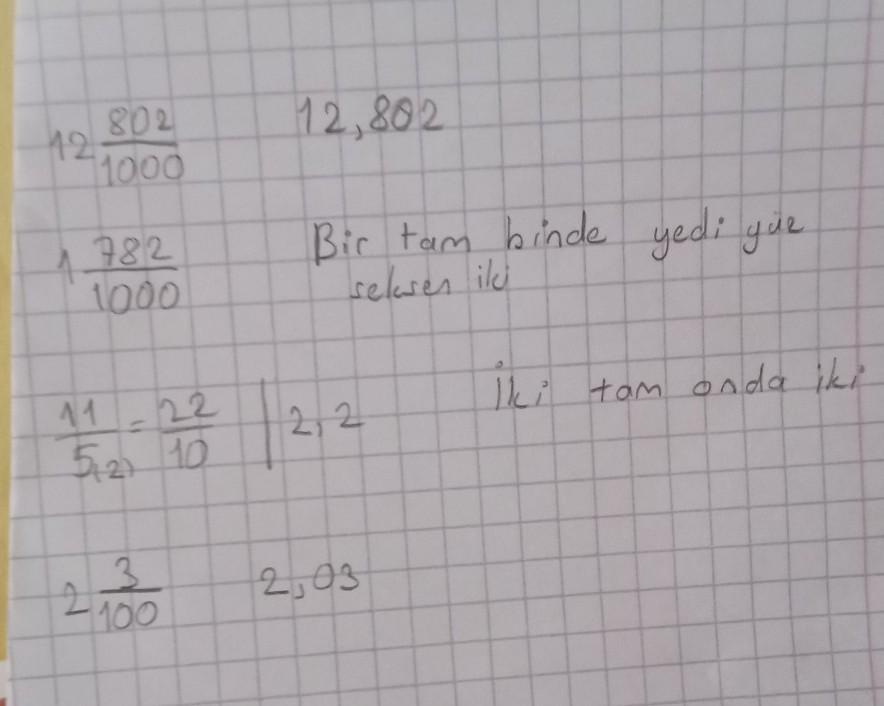 12 802/1000 12,802
1 782/1000 Bir tam binde yedi yüz
seksen iki
11/5(2) = 22/10 | 2,2 İki tam onda iki
2 3/100 2,03